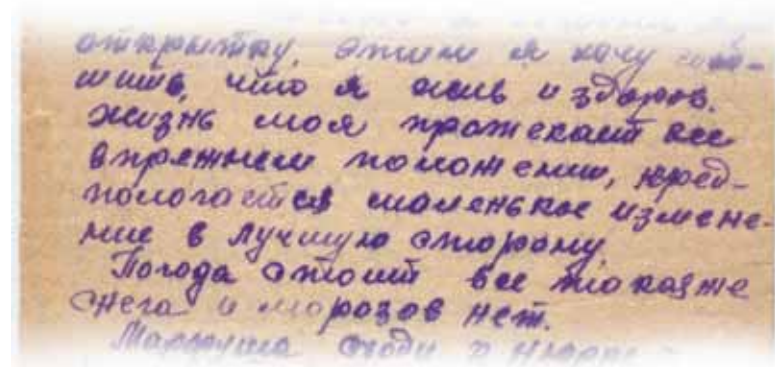 открытку, этим я хочу сооб-
щить, что я жив и здоров.
Жизнь моя протекает все
впрежнем положении, пред-
пологается маленькое измене-
ние в лучшую сторону.
Погода стоит все такаяже
снега и морозов нет.
Марфуша сходи к